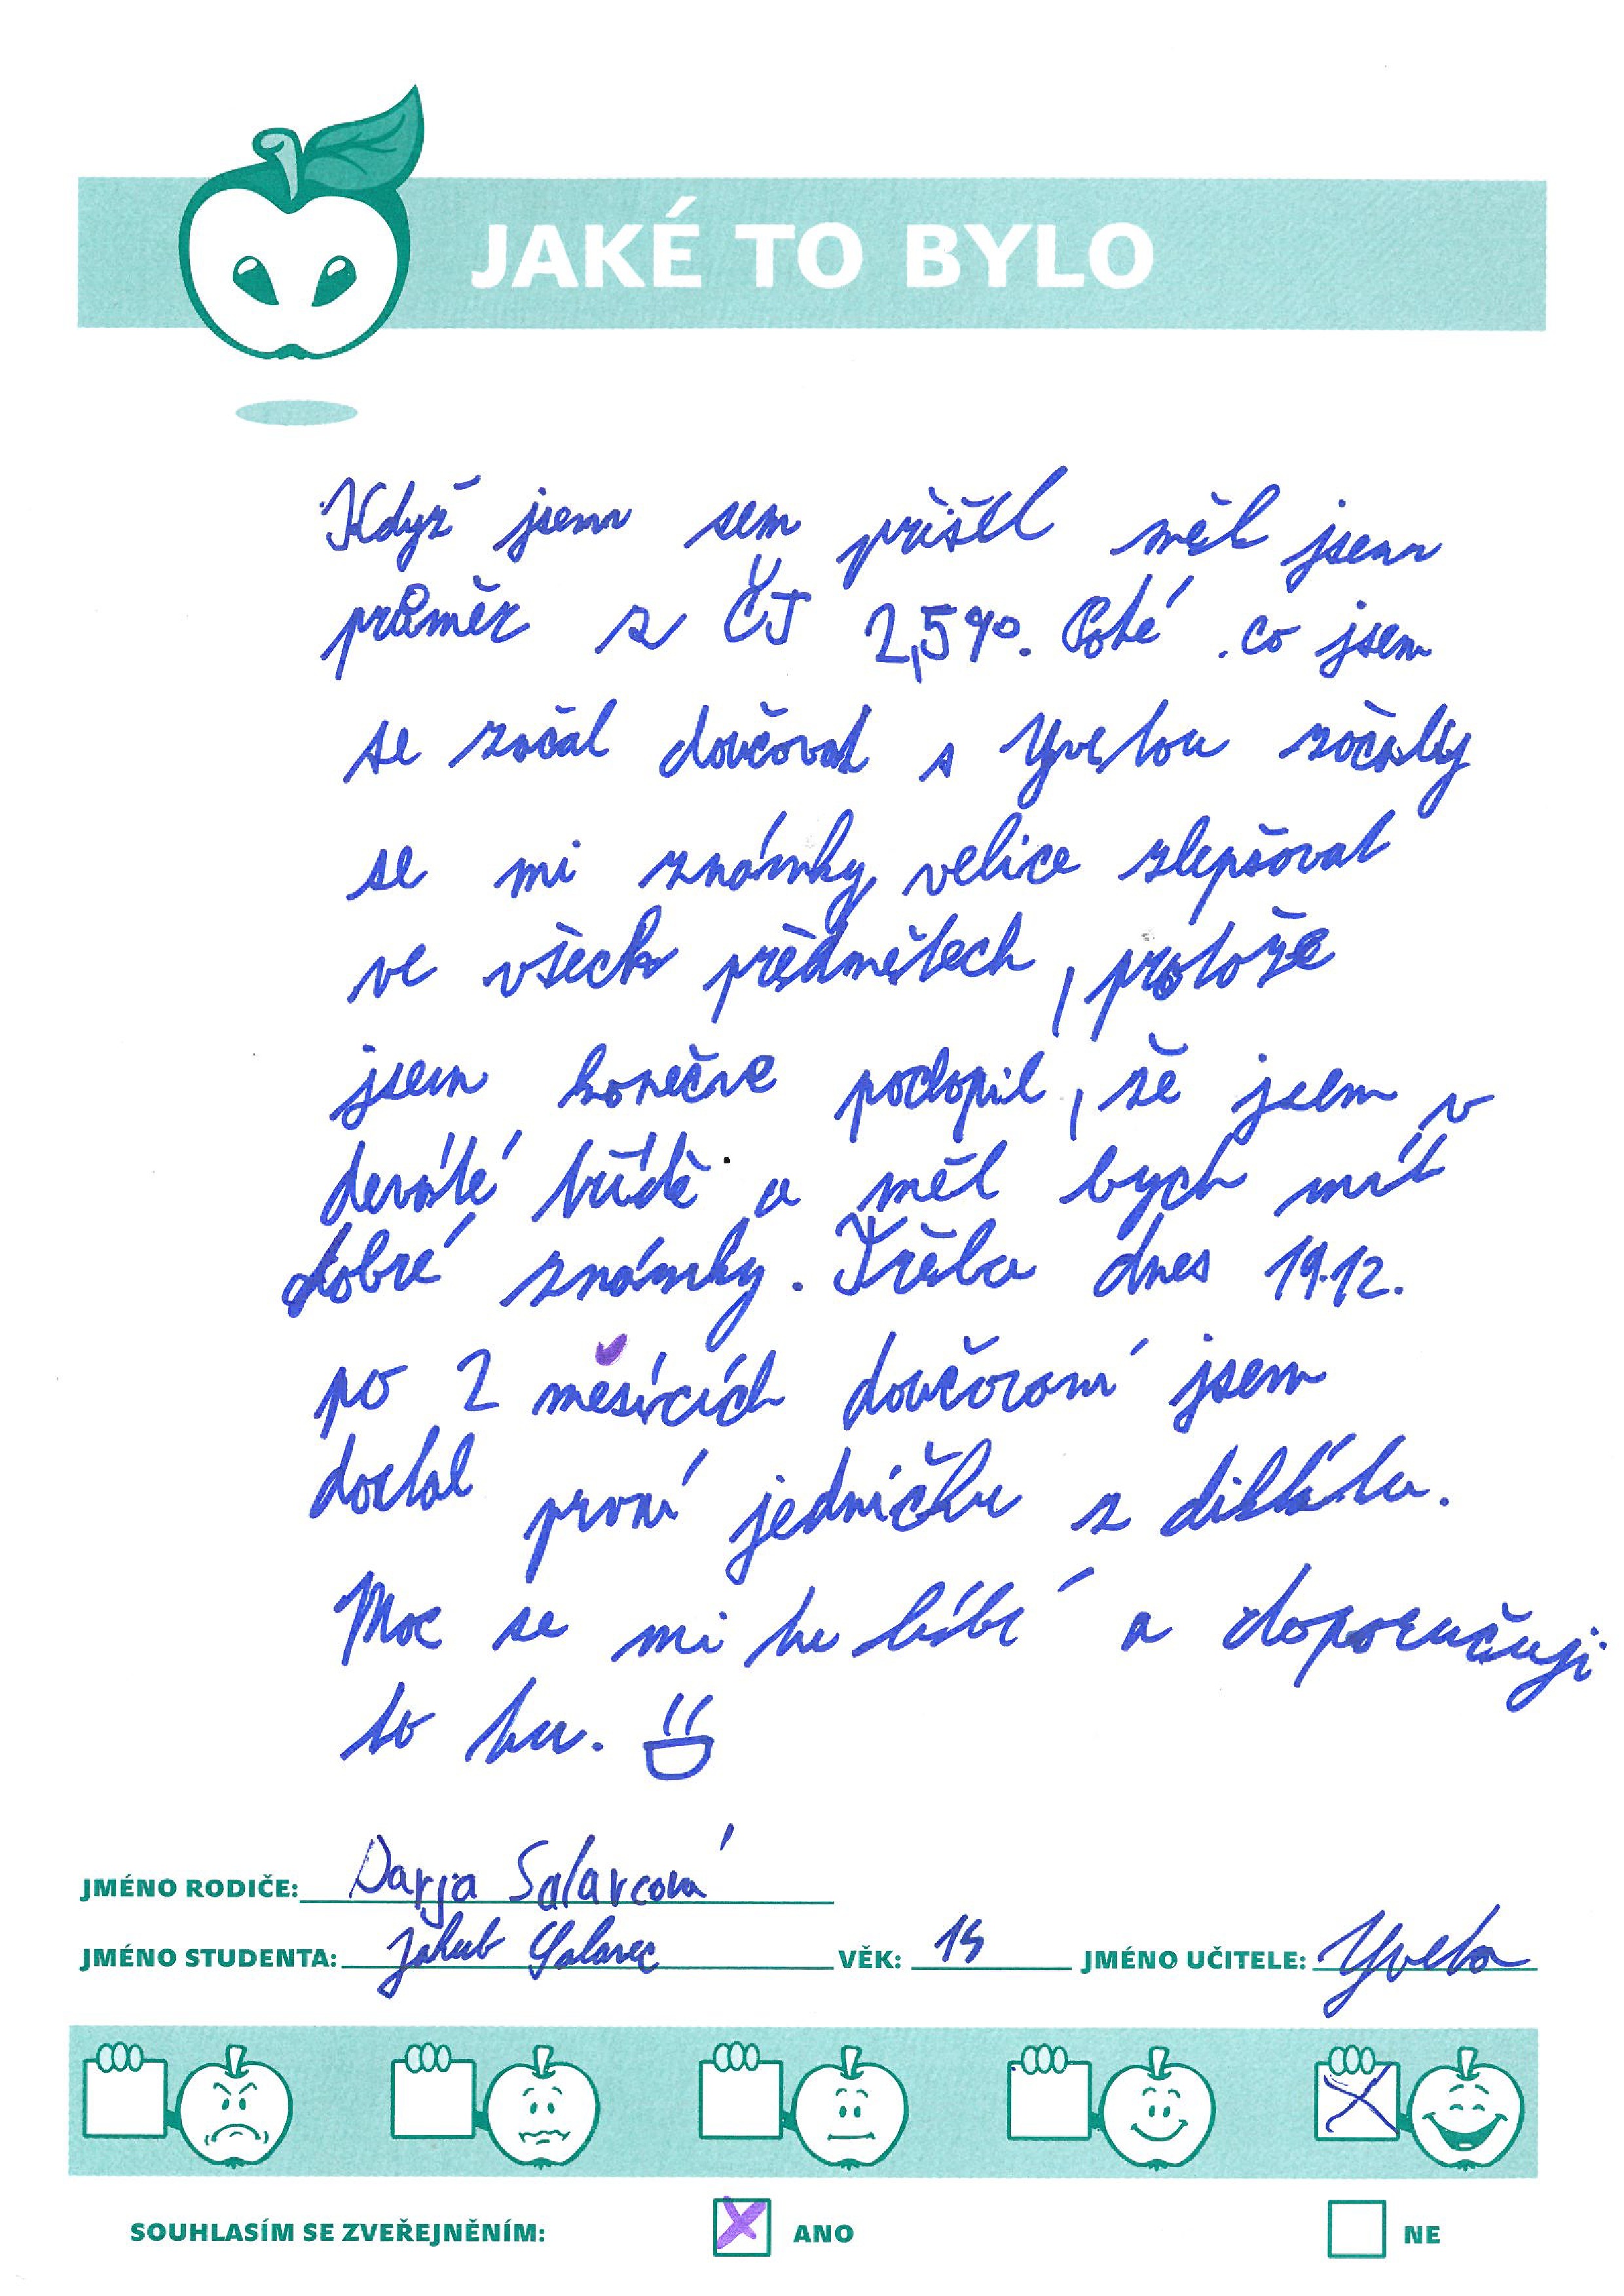 JAKÉ TO BYLO
Když jsem sem přišel měl jsem
průměr z ČJ 2,5%. Poté co jsem
se začal doučovat s Yvetou začaly
se mi známky velice zlepšovat
ve všech předmětech, protože
jsem konečne pochopil, že jsem v
deváté třídě a měl bych mít
dobré známky. Třeba dnes 19.12.
po 2 měsících doučovaní jsem
dostal první jedničku z diktátu.
Moc se mi tu líbí a doporučuji
to tu.
JMÉNO RODIČE: Darja Salavcová
JMÉNO STUDENTA: Jakub Salavec VĚK: 15 JMÉNO UČITELE: Yveta
SOUHLASÍM SE ZVEŘEJNĚNÍM: ANO NE